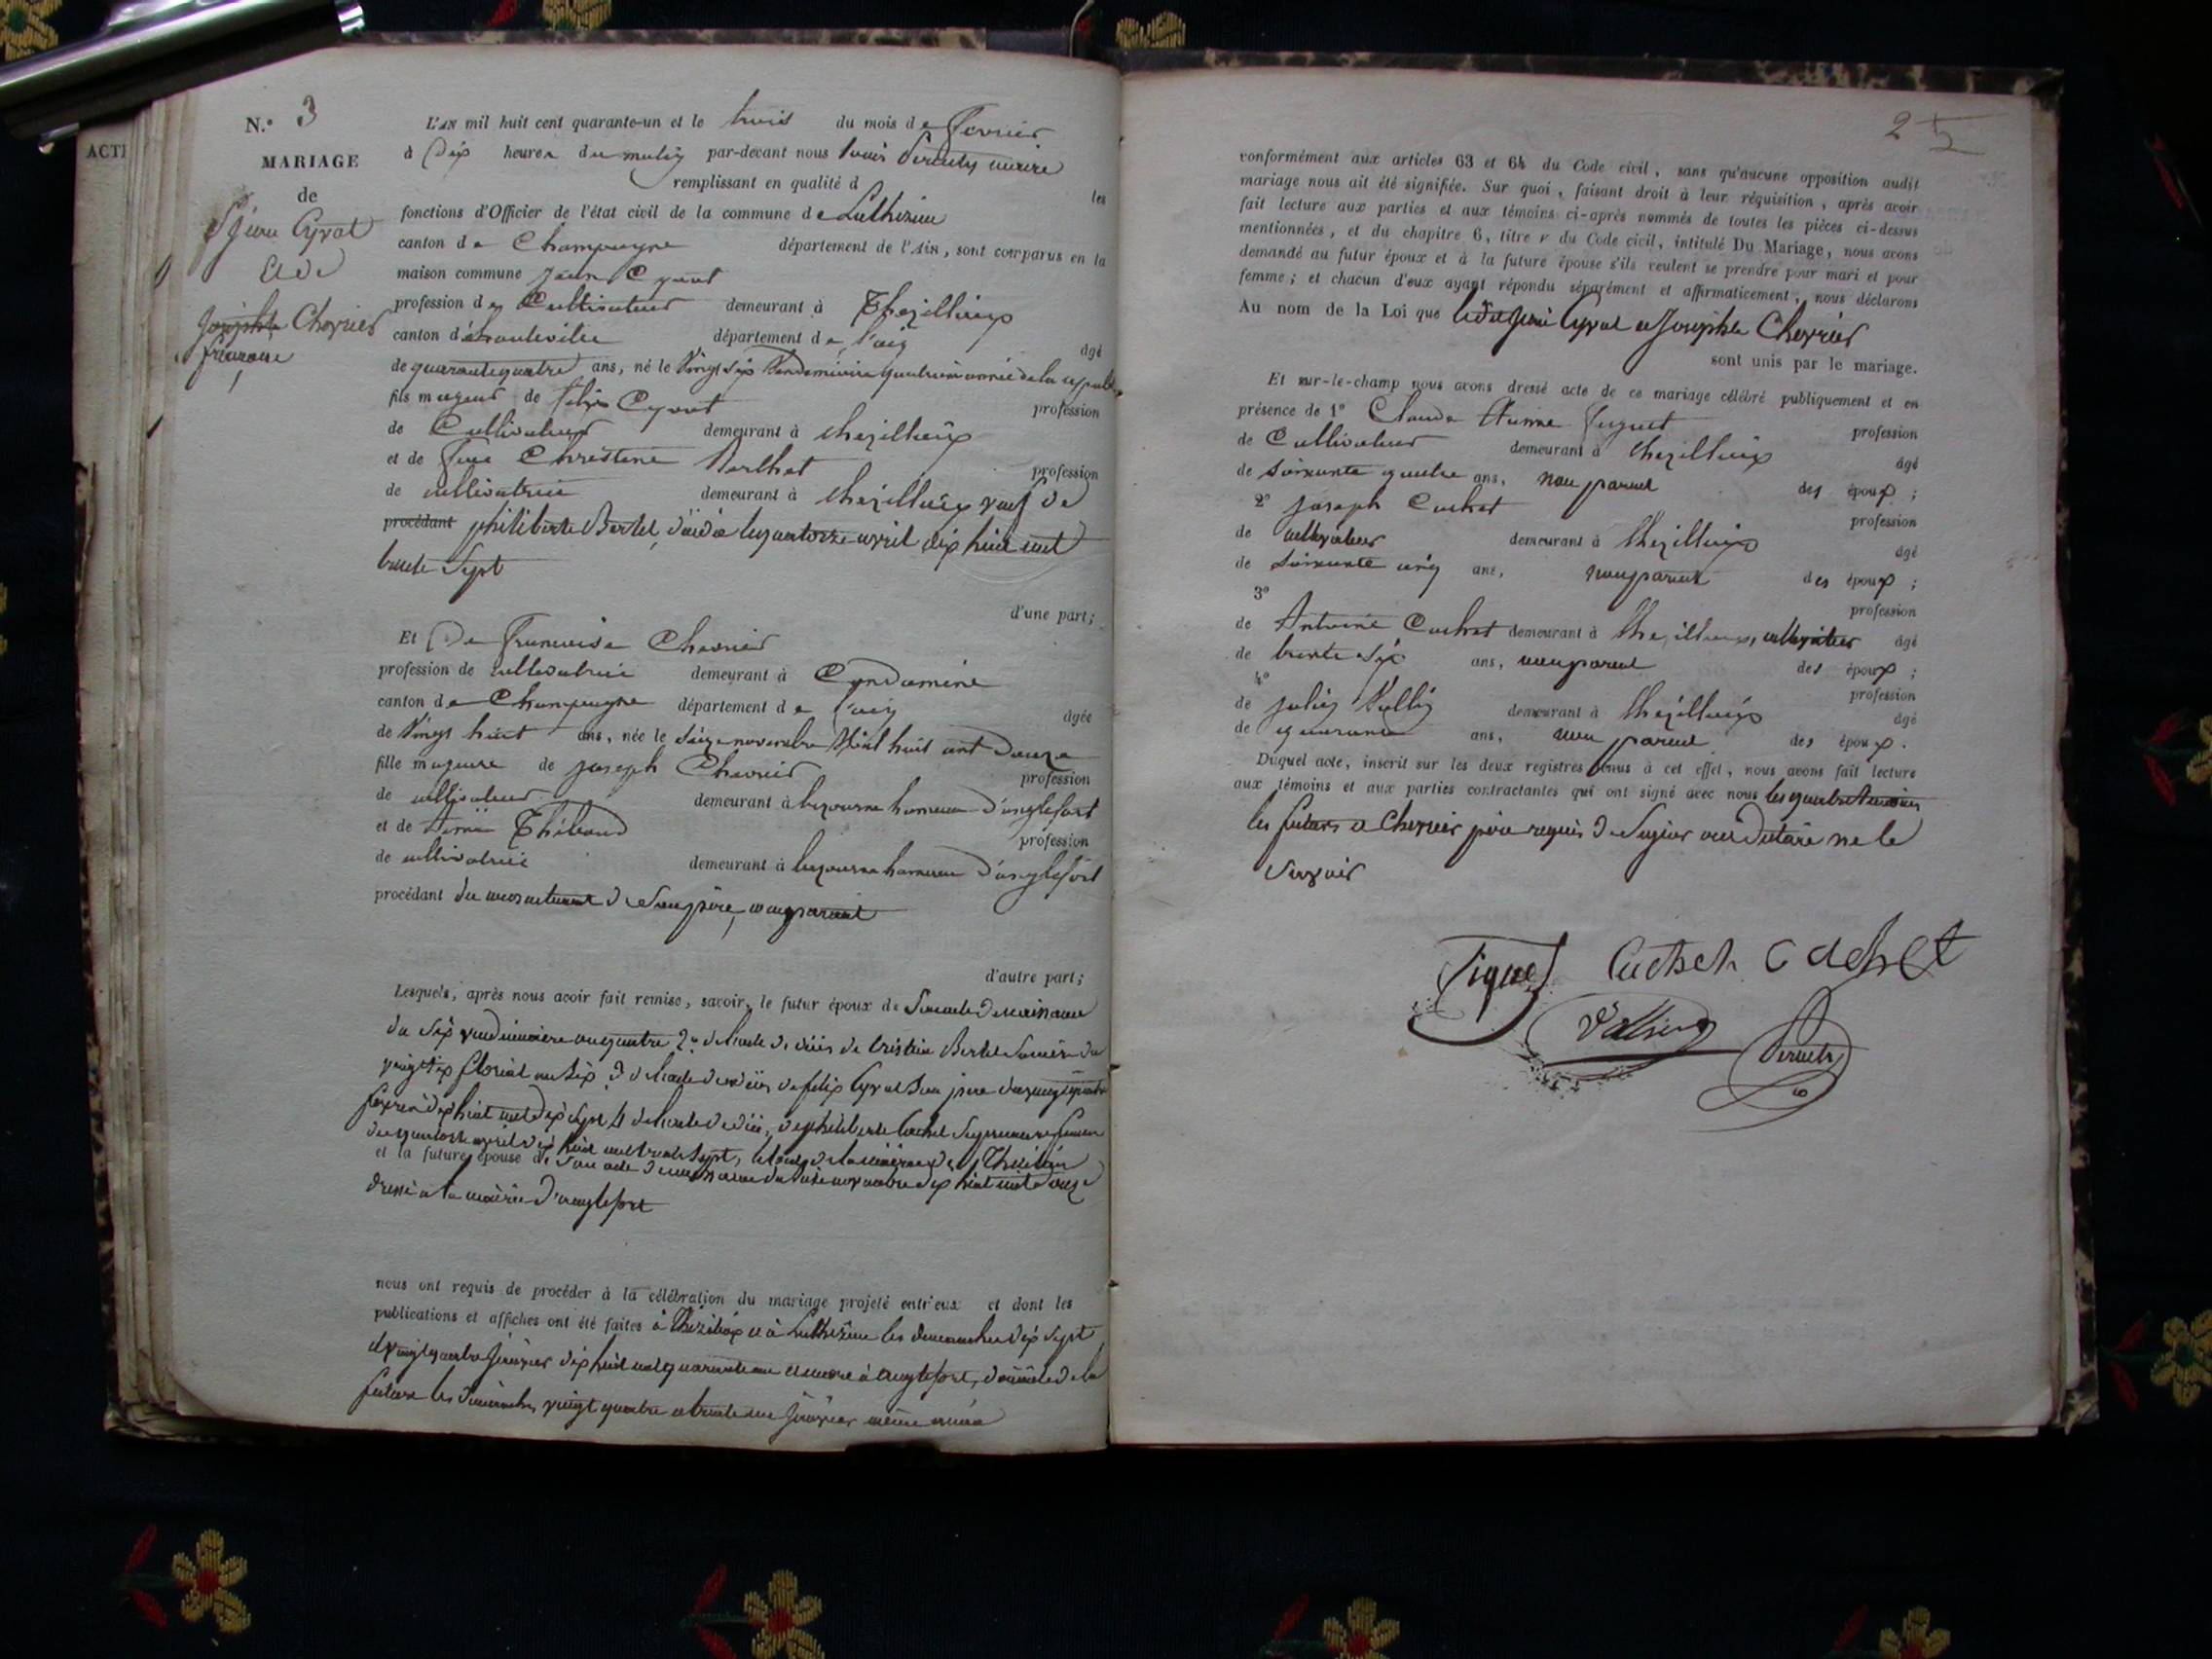 ACTI
N.° 3
MARIAGE
de
Jean Cyvat
et de
Josephte Chevrier
françoise
L'AN mil huit cent quarante-un et le trois du mois de fevrier
à Dix heures du matin par-devant nous Louis maire
remplissant en qualité d les
fonctions d'Officier de l'état civil de la commune de Luthézieu
canton de Champagne département de l'Ain, sont comparus en la
maison commune Jean Cyvat
profession de Cultivateur demeurant à Thezillieux
canton d'hauteville département de l'ain âgé
de quarante quatre ans, né le Vingt Six Vendémiaire quatrième année de la républ
fils majeur de felix Cyvat profession
de Cultivateur demeurant à thezillieux
et de feue Christine Berthet profession
de cultivatrice demeurant à thezillieux veuf de
procédant philiberte Berthet, décédée le quatorze avril dix huit cent
trente Sept
d'une part;
Et De Francoise Chevrier
profession de cultivatrice demeurant à Condamine
canton de Champagne département de l'ain âgée
de Vingt huit ans, née le Seize novembre Mil huit cent Douze
fille majeure de joseph Chevrier profession
de cultivateur demeurant à hameau d'anglefort
et de Thibaud profession
de cultivatrice demeurant à hameau d'anglefort
procédant du consentement de Son père, non parent
d'autre part;
Lesquels, après nous avoir fait remise, savoir, le futur époux de Son acte de naissance
du Six vendemiaire an quatre 2° de l'acte de décès de Cristine Berthet Sa mère du
vingt Six floréal an Six 3 de l'acte de décès de felix Cyvat Son père du vingt quatre
fevrier dix huit cent dix Sept 4 de l'acte de décès de philiberte Sa première femme
du quatorze avril dix huit cent trente Sept,
et la future épouse de Son acte de naissance du Seize novembre dix huit cent douze
dressé à la mairie d'anglefort
nous ont requis de procéder à la célébration du mariage projeté entr'eux et dont les
publications et affiches ont été faites à Thézillieux et à Luthézieu les dimanches dix Sept
et vingt quatre janvier dix huit cent quarante un et encore à anglefort, domicile de la
future les dimanches vingt quatre et trente un janvier même année
25
conformément aux articles 63 et 64 du Code civil, sans qu'aucune opposition audit
mariage nous ait été signifiée. Sur quoi, faisant droit à leur réquisition, après avoir
fait lecture aux parties et aux témoins ci-après nommés de toutes les pièces ci-dessus
mentionnées, et du chapitre 6, titre v du Code civil, intitulé Du Mariage, nous avons
demandé au futur époux et à la future épouse s'ils veulent se prendre pour mari et pour
femme; et chacun d'eux ayant répondu séparément et affirmativement, nous déclarons
Au nom de la Loi que ledit Jean Cyvat et Josephte Chevrier
sont unis par le mariage.
Et sur-le-champ nous avons dressé acte de ce mariage célébré publiquement et en
présence de 1° Claude Fuguet profession
de Cultivateur demeurant à thezillieux âgé
de Soixante quatre ans, non parent des époux;
2° joseph Cochet profession
de cultivateur demeurant à thezillieux âgé
de Soixante cinq ans, non parent des époux;
3° profession
de Antoine Cochet demeurant à thezillieux, cultivateur âgé
de trente Six ans, non parent des époux;
4° profession
de julien Vullin demeurant à thezillieux âgé
de quarante ans, non parent des époux.
Duquel acte, inscrit sur les deux registres tenus à cet effet, nous avons fait lecture
aux témoins et aux parties contractantes qui ont signé avec nous les quatre témoins
les futurs et Chevrier père requis de Signer ont déclaré ne le
Savoir
Cuchet Cochet